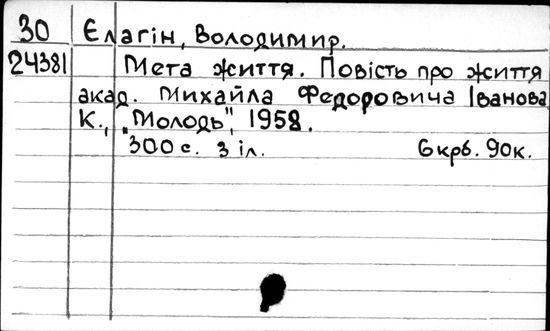 30 Єлагін, Володимир.
24381 Мета життя. Повість про життя
акад. Михайла Федоровича Іванова
К., „Молодь", 1958.
300 с. з іл. 6 крб. 90к.